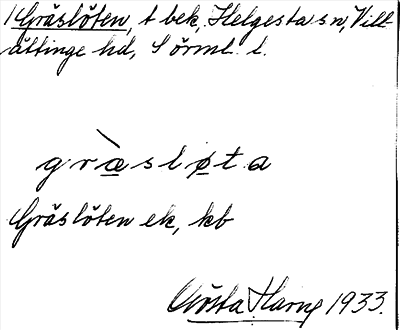 1 Gräslöten, t bek, Helgesta sn, Vill-
åttinge hd, Sörml. l.
græ̀sløta
Gräslöten ek, kb
Gösta Harne 1933.